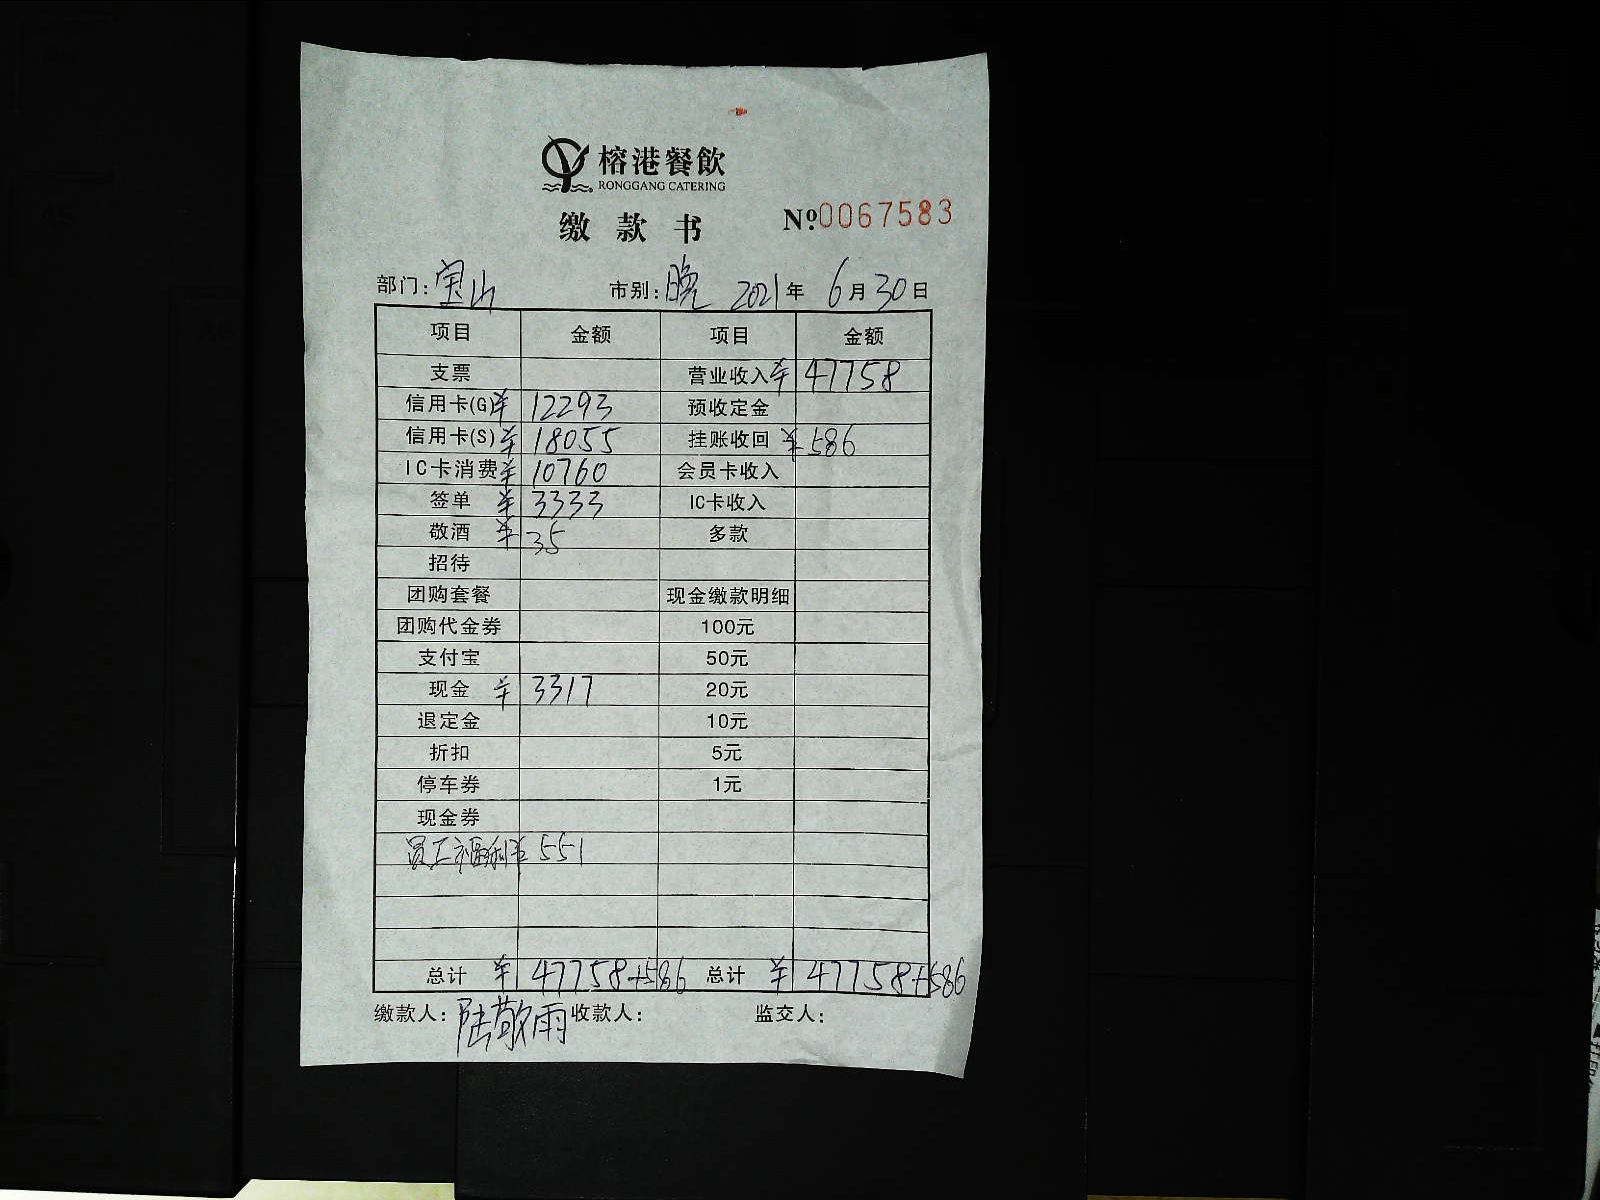 榕港餐飲
RONGGANG CATERING
缴款书 №0067583
部门：宝山 市别：晚 2021年6月30日
项目 金额 项目 金额
支票 营业收入 ¥47758
信用卡(G) ¥12293 预收定金
信用卡(S) ¥18055 挂账收回 ¥586
IC卡消费 ¥10760 会员卡收入
签单 ¥3333 IC卡收入
敬酒 ¥35 多款
招待
团购套餐 现金缴款明细
团购代金券 100元
支付宝 50元
现金 ¥3317 20元
退定金 10元
折扣 5元
停车券 1元
现金券
员工福利 ¥551
总计 ¥47758+586 总计 ¥47758+586
缴款人：陆敬雨 收款人： 监交人：